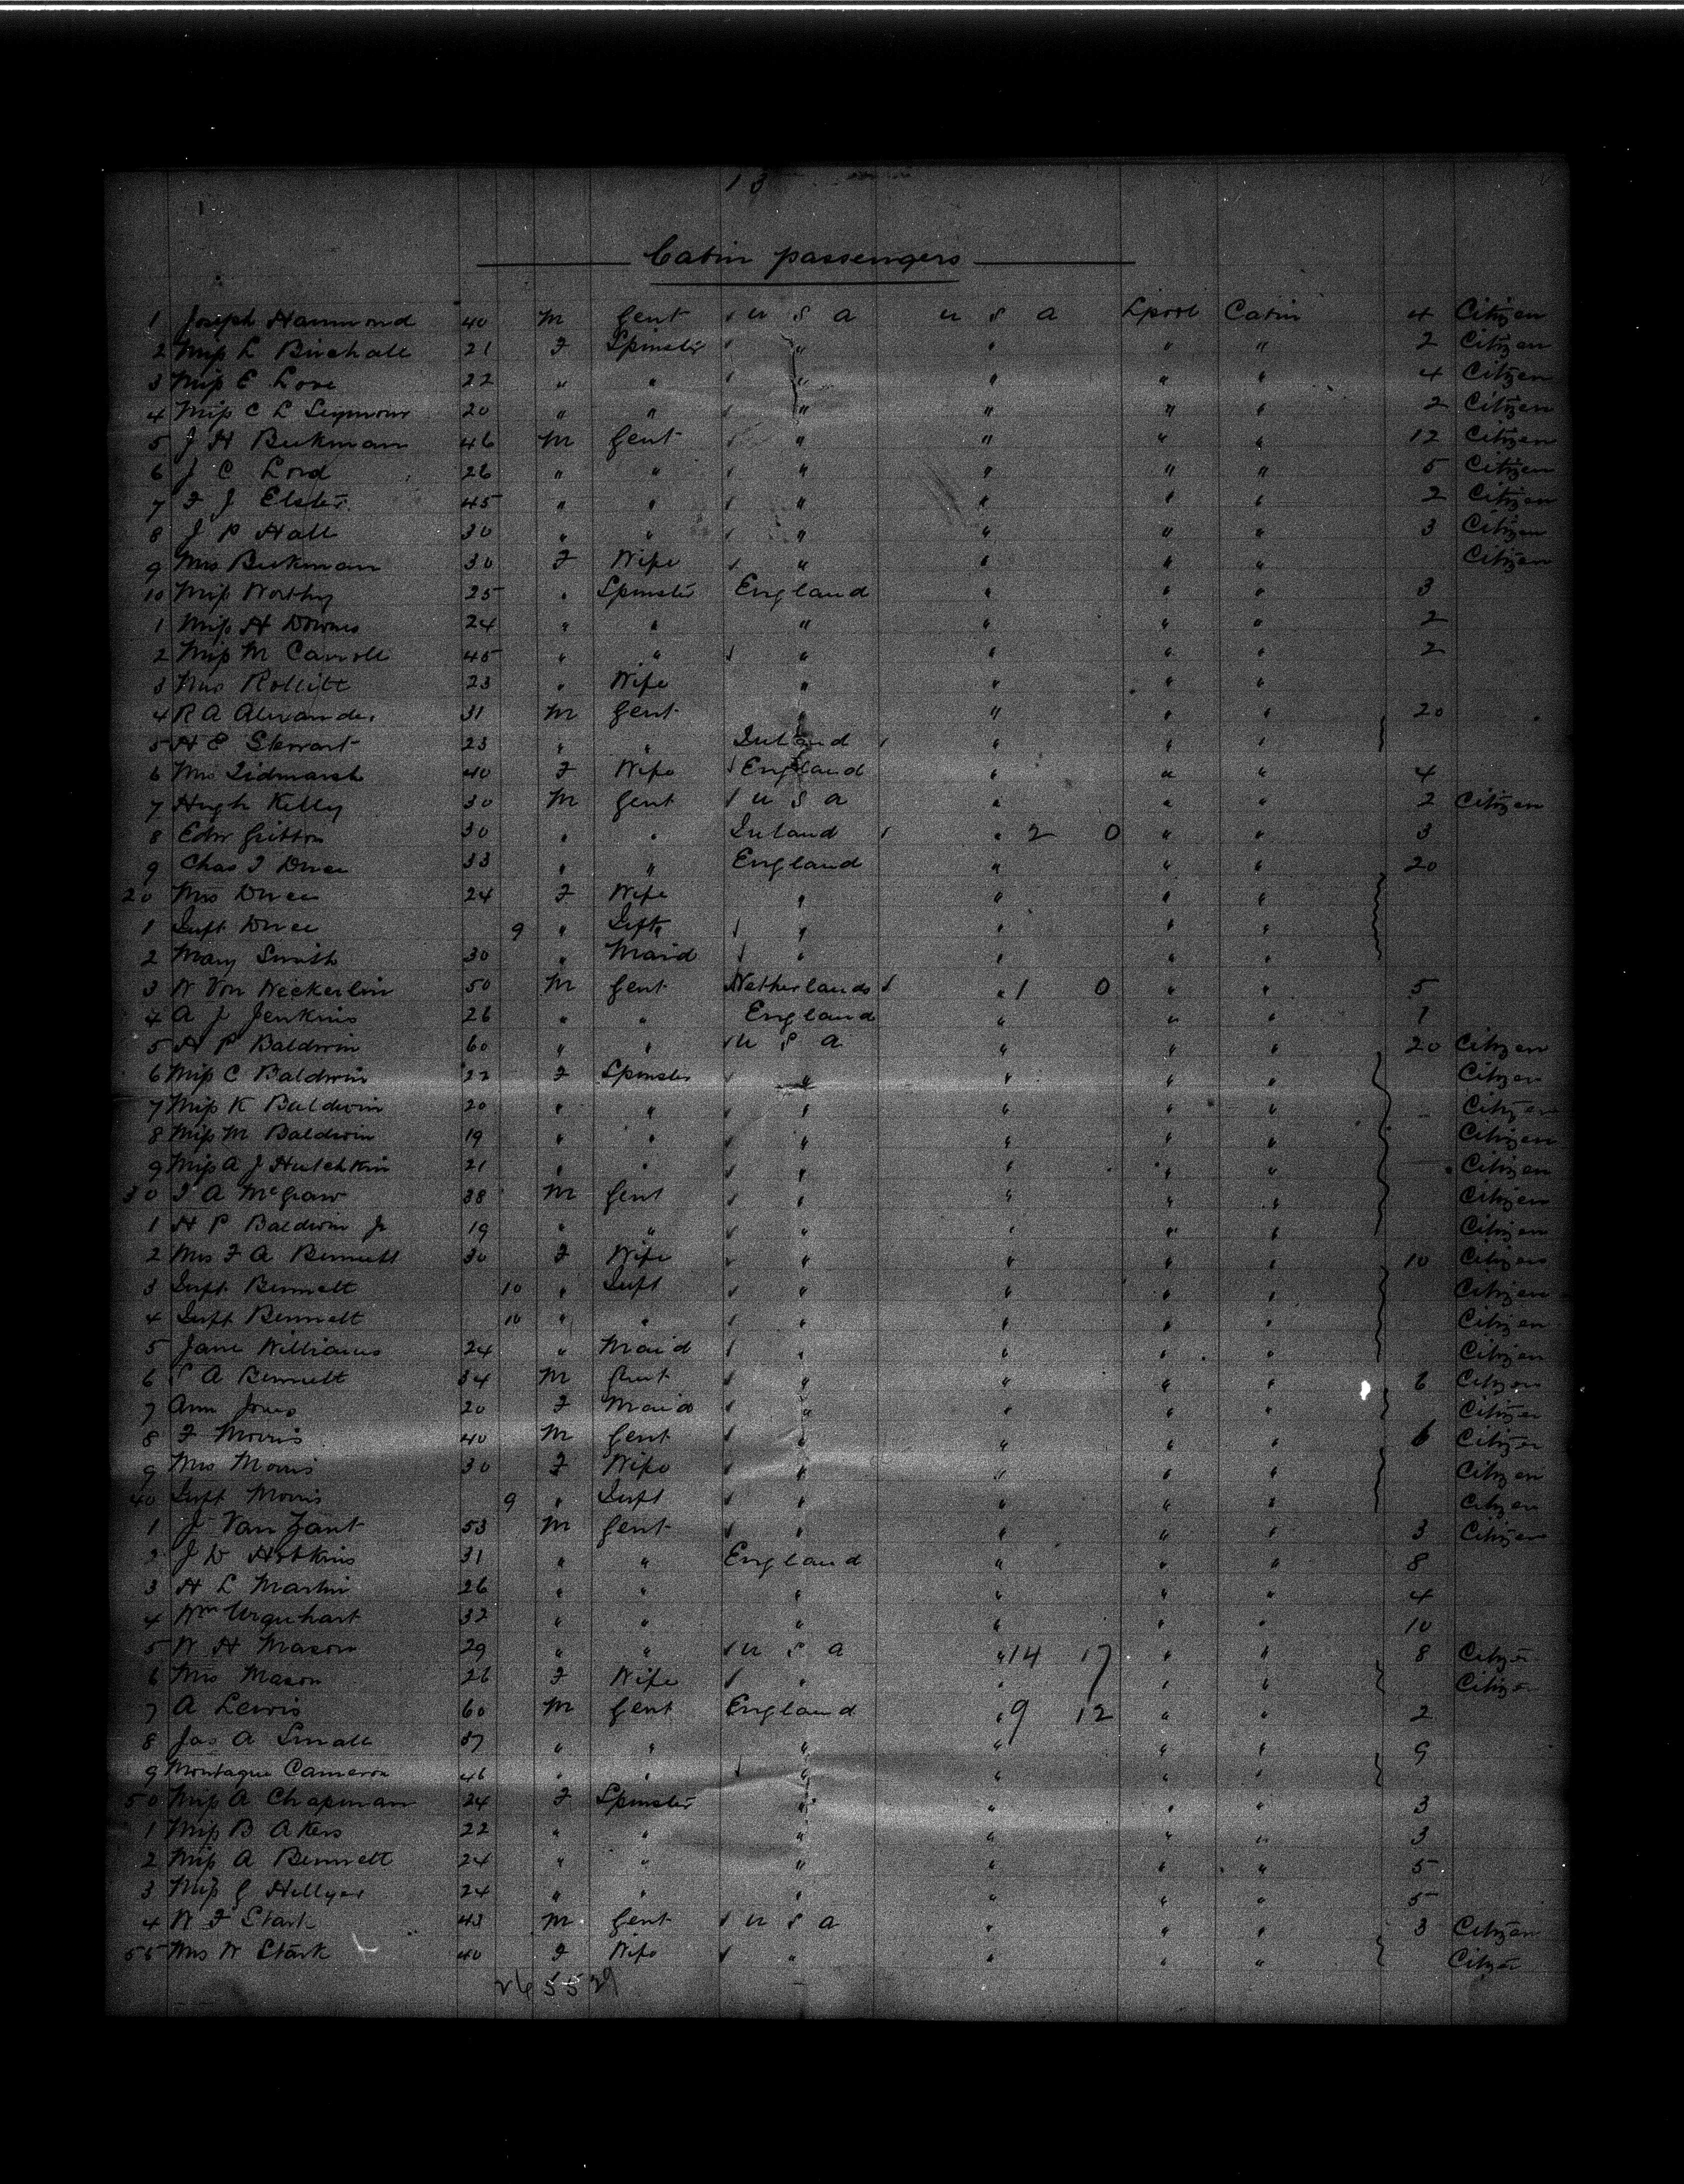 13
Cabin passengers
1 Joseph Hammond 40 M Gent U S A U S A Lpool Cabin 4 Citizen
2 Miss L Birchall 21 F Spinster " " " " 2 Citizen
3 Miss E Love 22 " " " " " " 4 Citizen
4 Miss C L Seymour 20 " " " " " " 2 Citizen
5 J H Beekman 46 M Gent " " " " 12 Citizen
6 J C Lord 26 " " " " " " 5 Citizen
7 F J Elster 45 " " " " " " 2 Citizen
8 J P Hall 30 " " " " " " 3 Citizen
9 Mrs Beekman 30 F Wife " " " " Citizen
10 Miss Worthy 25 " Spinster England " " " 3
1 Miss H Downes 24 " " " " " " 2
2 Miss M Carroll 45 " " " " " " 2
3 Mrs Rollitt 23 " Wife " " " "
4 R A Alexander 31 M Gent " " " " 20
5 H E Stewart 23 " " Ireland " " "
6 Mrs Tidmarsh 40 F Wife England " " " 4
7 Hugh Kelly 30 M Gent U S A " " " 2 Citizen
8 Edw Gritton 30 " " Ireland " 2 0 " " 3
9 Chas I 33 " " England " " " 20
20 Mrs 24 F Wife " " " "
1 Inft 9 " Inft " " " "
2 Mary Smith 30 " Maid " " " "
3 W Von Weckerlin 50 M Gent Netherlands " 1 0 " " 5
4 A J Jenkins 26 " " England " " " 1
5 H P Baldwin 60 " " U S A " " " 20 Citizen
6 Miss C Baldwin 22 F Spinster " " " " Citizen
7 Miss K Baldwin 20 " " " " " " Citizen
8 Miss M Baldwin 19 " " " " " " Citizen
9 Miss A J Hutchkin 21 " " " " " " Citizen
30 T A McGraw 38 M Gent " " " " Citizen
1 H P Baldwin Jr 19 " " " " " " Citizen
2 Mrs F A Bennett 30 F Wife " " " " 10 Citizen
3 Inft Bennett 10 " Inft " " " " Citizen
4 Inft Bennett 10 " " " " " " Citizen
5 Jane Williams 24 " Maid " " " " Citizen
6 A Bennett 34 M Gent " " " " 6 Citizen
7 Ann Jones 20 F Maid " " " " Citizen
8 F Morris 40 M Gent " " " " 6 Citizen
9 Mrs Morris 30 F Wife " " " " Citizen
40 Inft Morris 9 " Inft " " " " Citizen
1 J Van Zant 53 M Gent " " " " 3 Citizen
2 J D Hopkins 31 " " England " " " 8
3 H L Martin 26 " " " " " " 4
4 Wm Urquhart 32 " " " " " " 10
5 W H Mason 29 " " U S A " 14 17 " " 8 Citizen
6 Mrs Mason 26 F Wife " " " " Citizen
7 A Lewis 60 M Gent England " 9 12 " " 2
8 Jas A Small 37 " " " " " " 9
9 Montague Cameron 46 " " " " " "
50 Miss A Chapman 24 F Spinster " " " " 3
1 Miss B Akers 22 " " " " " " 3
2 Miss A Bennett 24 " " " " " " 5
3 Miss G Hellyer 24 " " " " " " 5
4 W F Stark 43 M Gent U S A " " " 3 Citizen
55 Mrs W Stark 40 F Wife " " " " Citizen
26 55 29